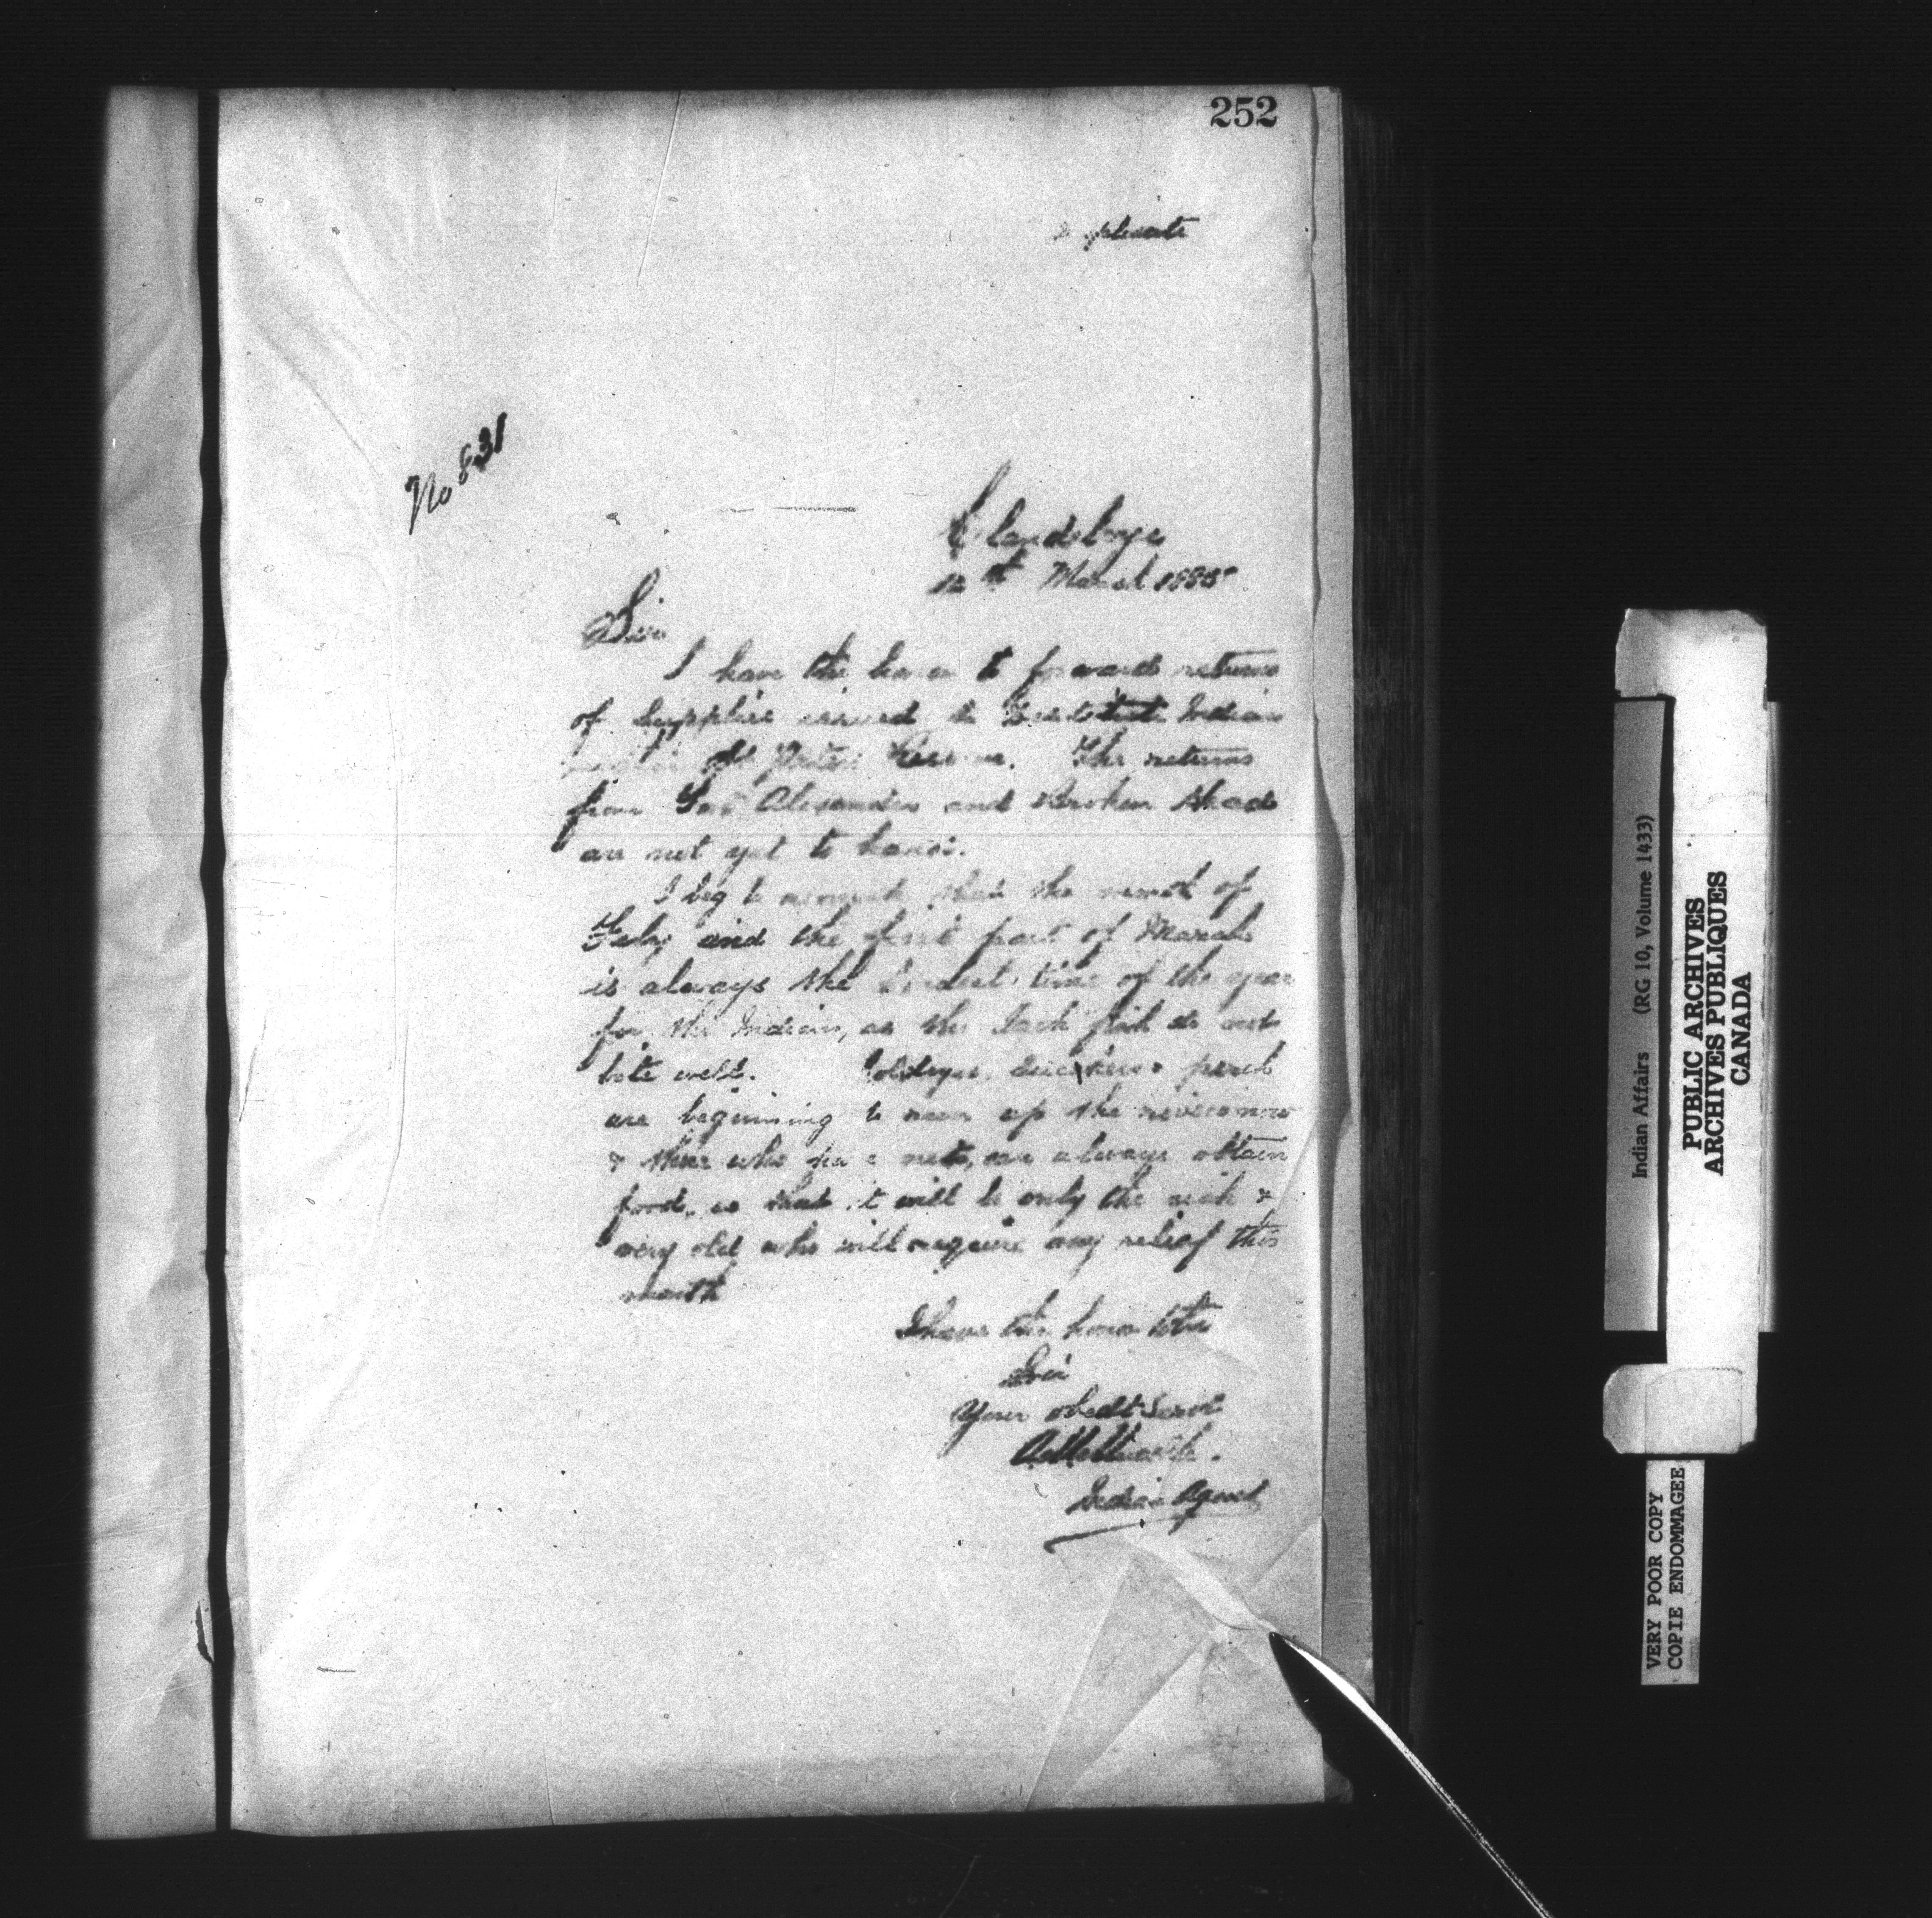 252
No 831
Clandeboye
12th March 1885
Sir
I have the honor to forward returns
of Supplies issued to Destitute Indians
St Peters Reserve. The returns
from Fort Alexander and Broken Head
are not yet to hand.
I beg to that the month of
Feby and the first part of March
is always the hardest time of the year
for the Indians, as the Jack fish do not
bite well. Goldeyes, Suckers & perch
are beginning to run up the river now
& those who have nets, can always obtain
food, so that it will be only the sick &
very old who will require any relief this
month
I have the honor to be
Sir
Your obedt Servt
Indian Agent
Indian Affairs (RG 10, Volume 1433)
PUBLIC ARCHIVES
ARCHIVES PUBLIQUES
CANADA
VERY POOR COPY
COPIE ENDOMMAGEE